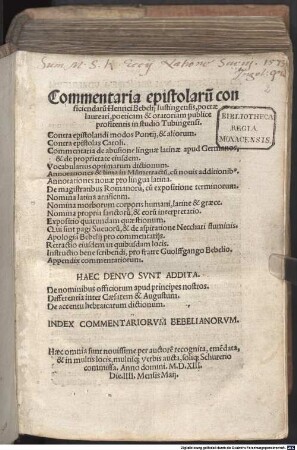 Commentaria epistolarū con
ficiendarū Henrici Bebelij Iustingensis, poetæ
laureati, poeticam & oratoriam publice
profitentis in studio Tubingensi.
Contra epistolandi modos Pontij, & aliorum.
Contra epistolas Caroli.
Commentaria de abusione linguæ latinæ apud Germanos,
& de proprietate eiusdem.
Vocabularius optimarum dictionum.
Annotationes in Māmetractū, cū nouis additionibꝰ.
Annotationes nouæ pro lingua latina.
De magistratibus Romanorū, cū expositione terminorum.
Nomina latina
Nomina morborum corporis humani, latine & græce.
Nomina propria sanctorū, & eorū interpretatio.
Expositio quarundam quæstionum.
Qui sint pagi Sueuorū, & de aspiratione Necchari fluminis.
Apologia Bebelij pro commentarijs.
Retractio eiusdem in quibusdam locis.
Institutio bene scribendi, pro fratre Guolffgango Bebelio.
Appendix commentariorum.
HAEC DENVO SVNT ADDITA.
De nominibus officiorum apud principes nostros.
Differentia inter Cæsarem & Augustum.
De accentu hebraicarum dictionum.
INDEX COMMENTARIORVM BEBELIANORVM.
Hæc omnia sunt nouissime per auctorē recognita, emēdata,
& in multis locis, multisq; verbis aucta, solisq; Schurerio
commissa. Anno domini. M.D.XIII.
Die. IIII. Mensis Maij.
BIBLIOTHECA
REGIA
MONACENSIS.